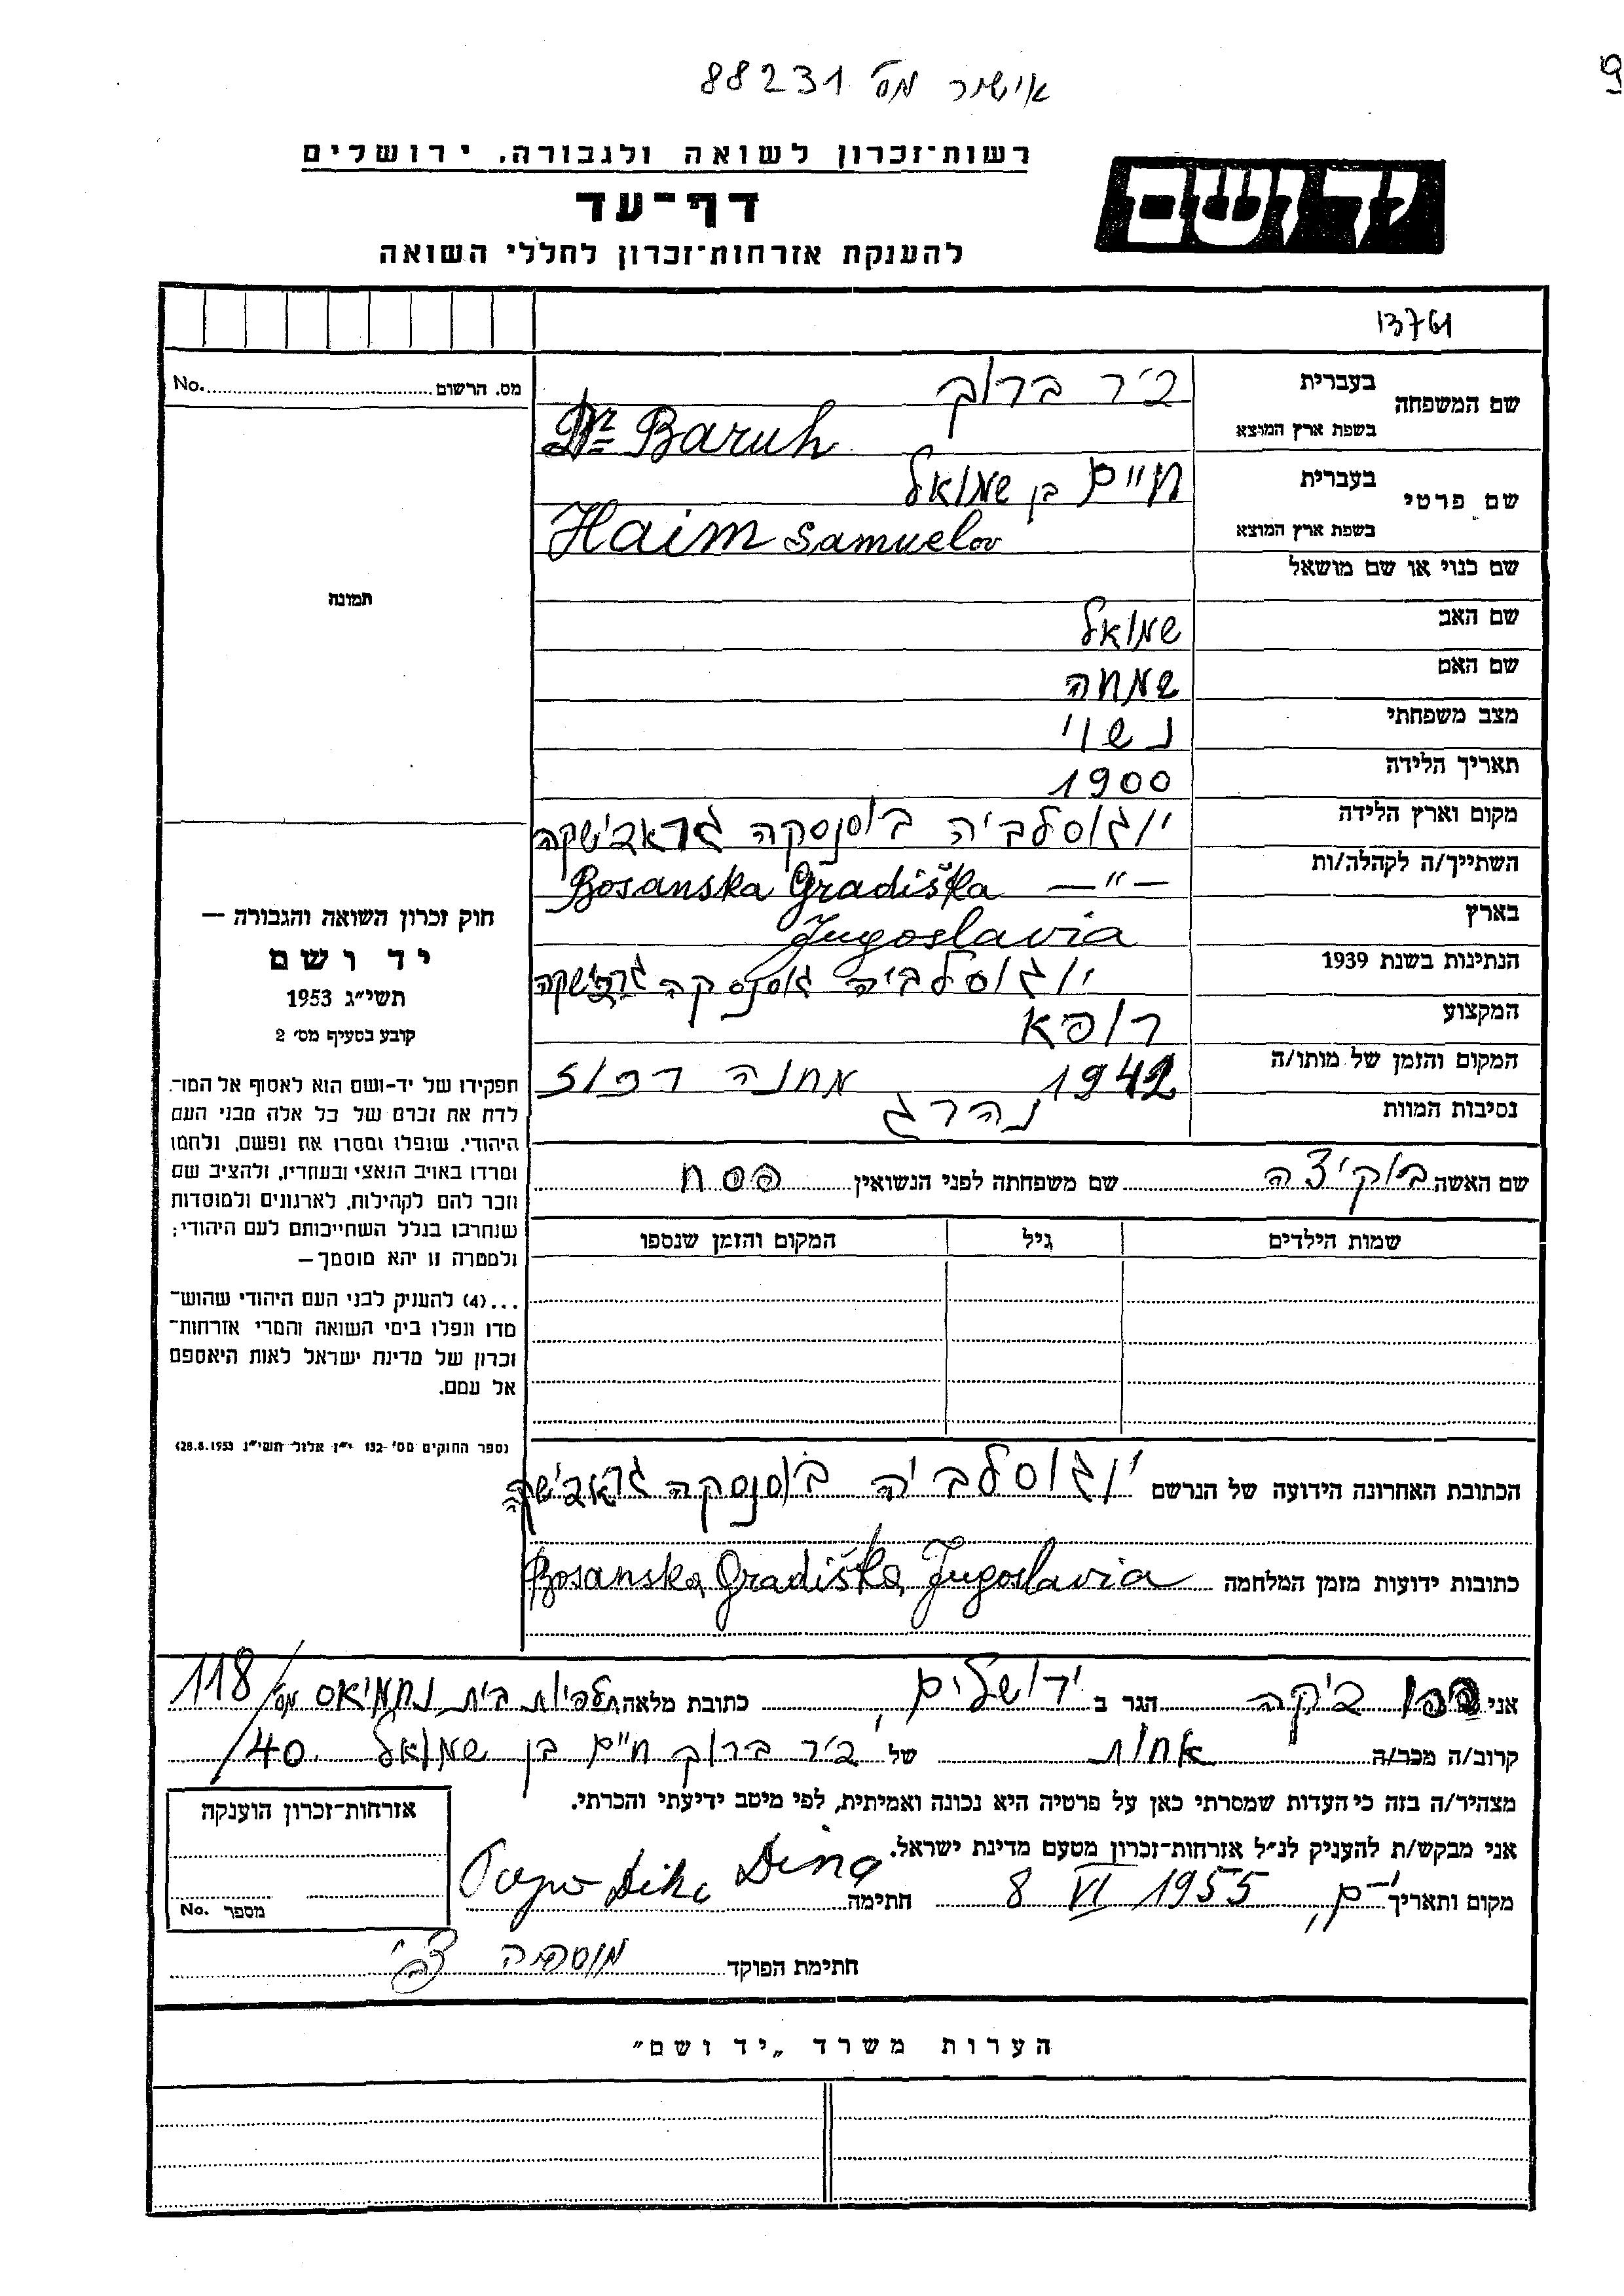 אישור מס' 88231
9
רשות־זכרון לשואה ולגבורה, ירושלים
יד ושם
דף־עד
להענקת אזרחות־זכרון לחללי השואה
13761
מס. הרשום No.
שם המשפחה בעברית ד״ר ברוך
בשפת ארץ המוצא Dr Baruh
שם פרטי בעברית חיים בן שמואל
בשפת ארץ המוצא Haim Samuelov
שם כנוי או שם מושאל
תמונה
שם האב שמואל
שם האם שמחה
מצב משפחתי נשוי
תאריך הלידה 1900
מקום וארץ הלידה יוגוסלביה בוסנסקה
השתייך/ה לקהלה/ות Bosanska Gradiška —"—
בארץ Jugoslavia
הנתינות בשנת 1939 יוגוסלביה
המקצוע רופא
המקום והזמן של מותו/ה 1942 מחנה רכוז
נסיבות המוות נהרג
חוק זכרון השואה והגבורה —
יד ושם
תשי״ג 1953
קובע בסעיף מס' 2
תפקידו של יד-ושם הוא לאסוף אל המו־
לדת את זכרם של כל אלה מבני העם
היהודי, שנפלו ומסרו את נפשם, נלחמו
ומרדו באויב הנאצי ובעוזריו, ולהציב שם
וזכר להם לקהילות, לארגונים ולמוסדות
שנחרבו בגלל השתייכותם לעם היהודי;
ולמטרה זו יהא מוסמך—
...(4) להעניק לבני העם היהודי שהוש־
מדו ונפלו בימי השואה והמרי אזרחות־
זכרון של מדינת ישראל לאות היאספם
אל עמם.
(ספר החוקים מס' 132 י״ז אלול תשי״ג 28.8.1953)
שם האשה בוקיצה שם משפחתה לפני הנשואין פסח
שמות הילדים גיל המקום והזמן שנספו
הכתובת האחרונה הידועה של הנרשם יוגוסלביה בוסנסקה
כתובות ידועות מזמן המלחמה Bosanska Gradiška Jugoslavia
אני פפו דיקה הגר ב ירושלים, כתובת מלאה תלפיות בית מס' 118/
קרוב/ה מכר/ה אחות של ד״ר ברוך חיים בן שמואל 40/
מצהיר/ה בזה כי העדות שמסרתי כאן על פרטיה היא נכונה ואמיתית, לפי מיטב ידיעתי והכרתי.
אני מבקש/ת להעניק לנ״ל אזרחות־זכרון מטעם מדינת ישראל.
מקום ותאריך י-ם, 8 VI 1955 חתימה Papo Dika Dina
אזרחות־זכרון הוענקה
מספר No.
חתימת הפוקד צבי
הערות משרד „יד ושם”